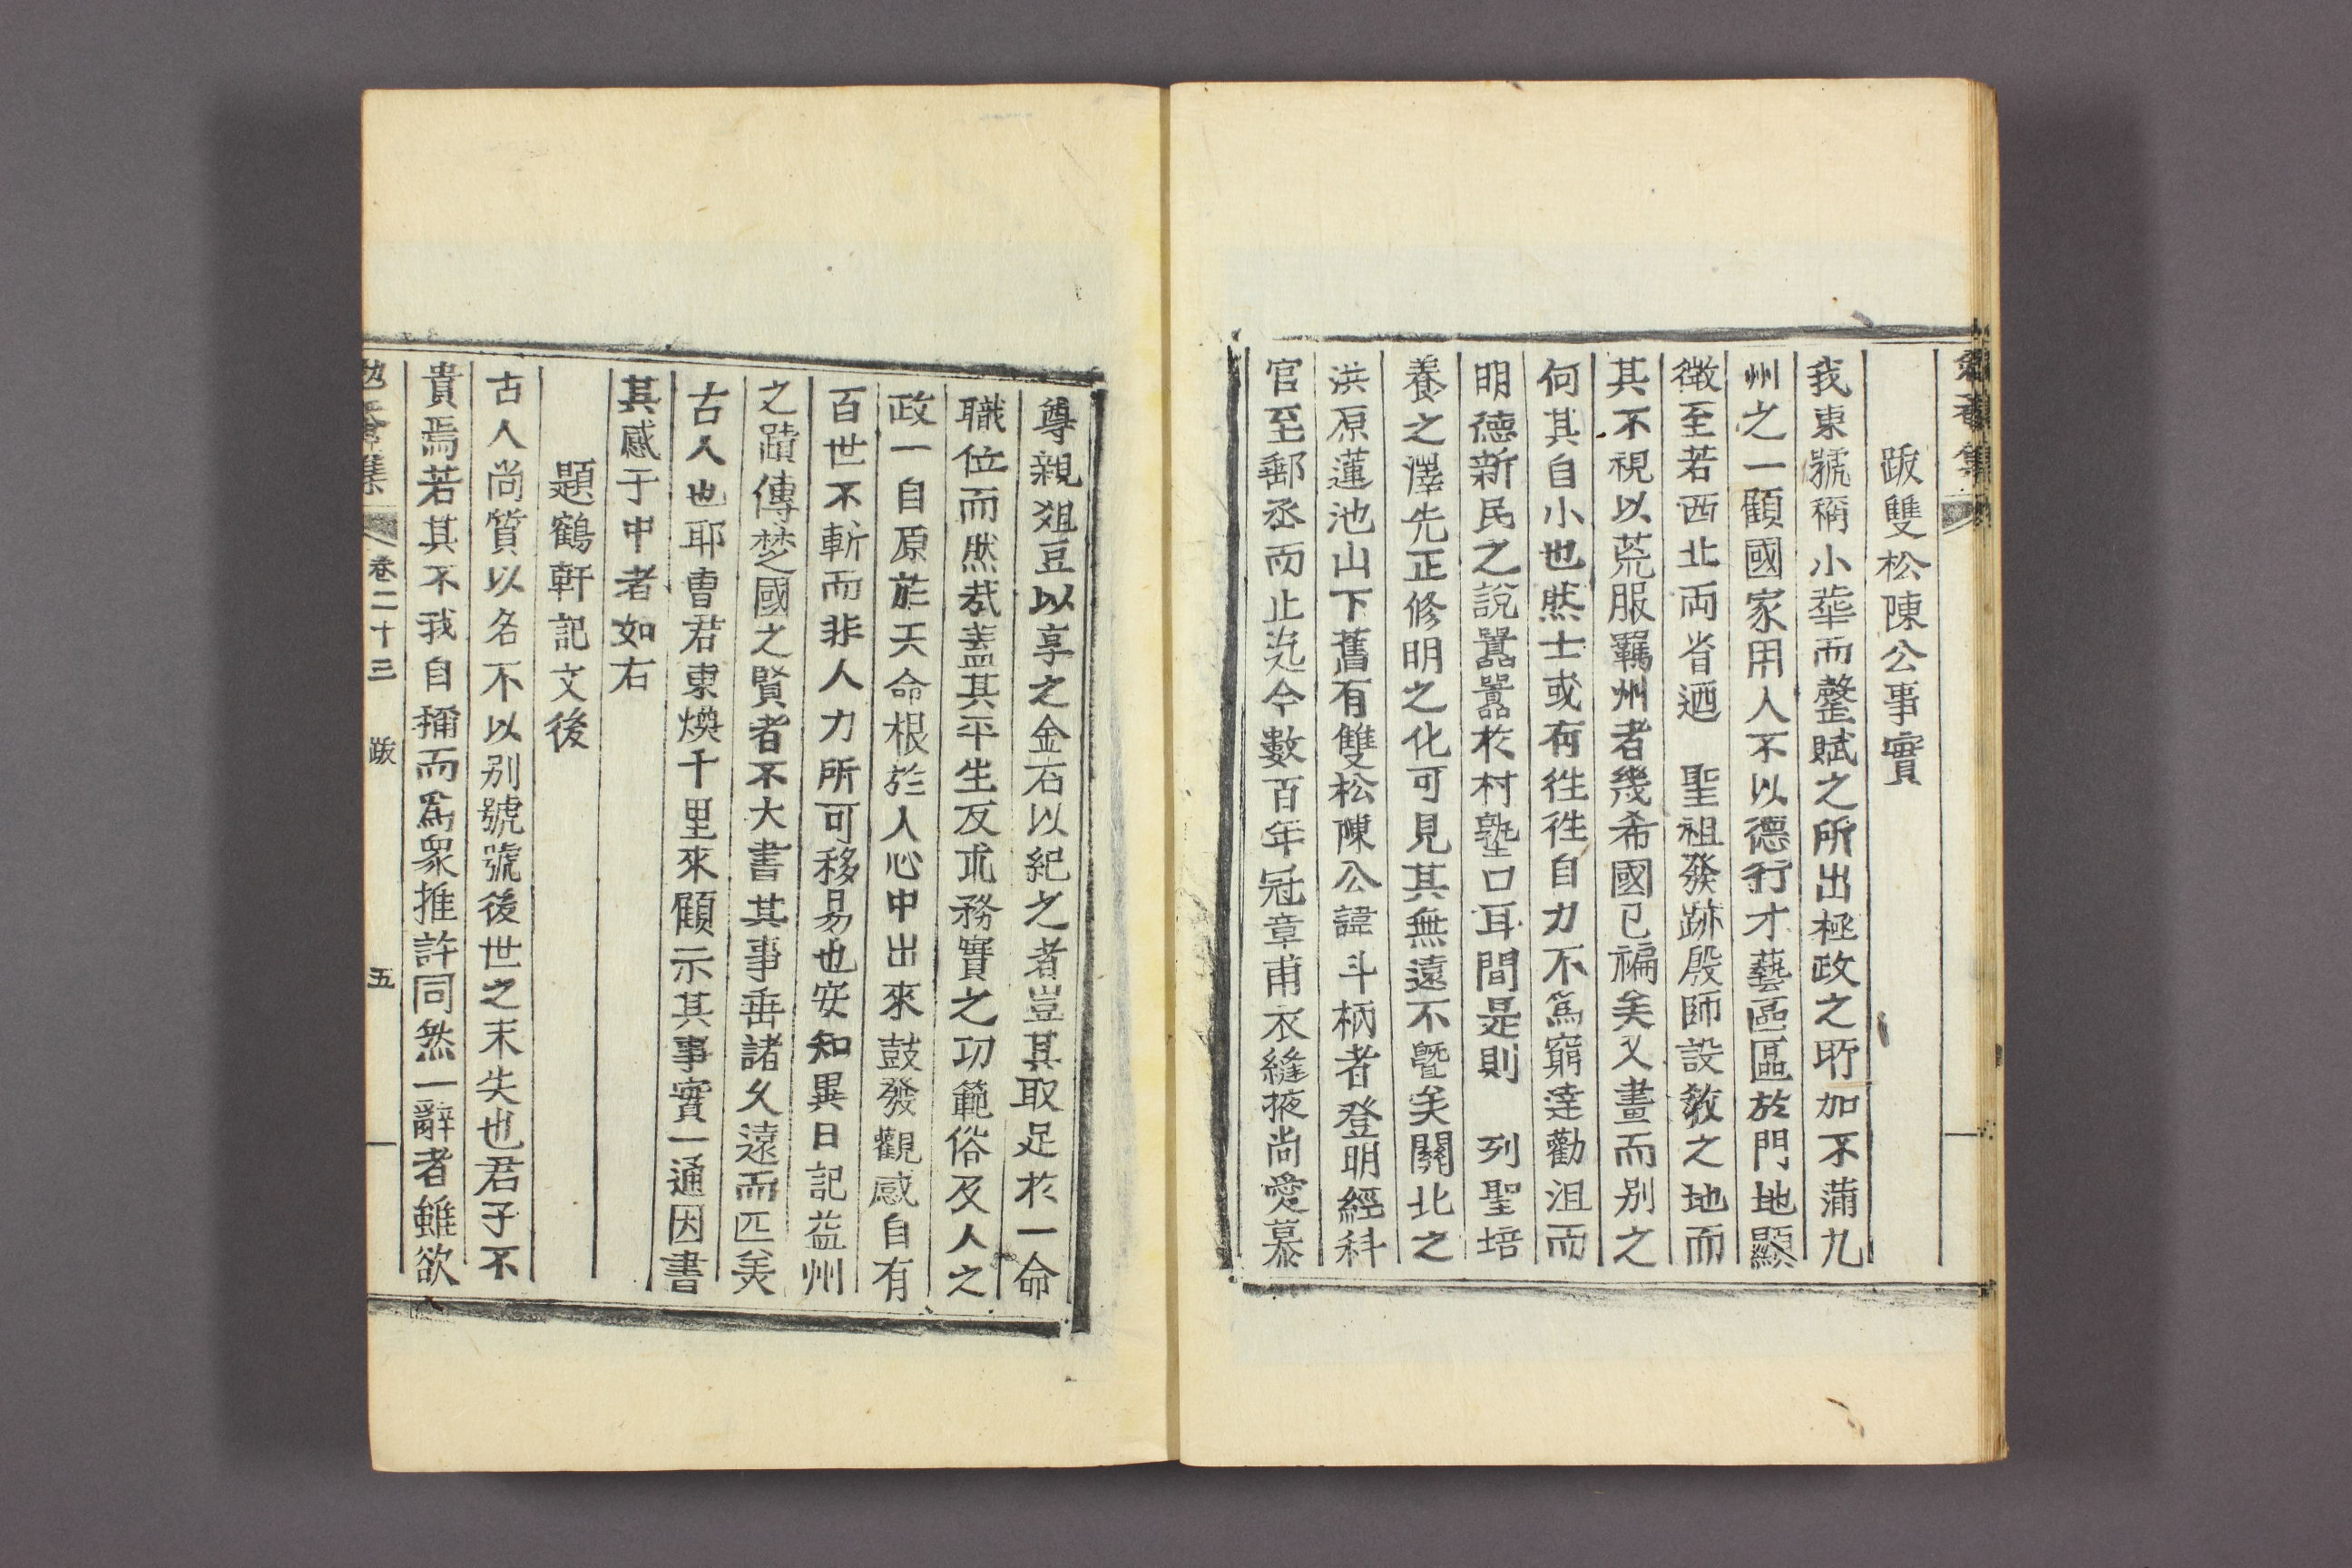 跋雙松陳公事實
我東號稱小華而壟賦之所出極政之所加不蒲九
州之一顧國家用人不以德行才藝區區於門地顯
徵至若西北兩省迺　聖祖發跡殷師設敎之地而
其不視以荒服羈州者幾希國已褊矣又畫而別之
何其自小也然士或有徃徃自力不爲窮達勸沮而
明德新民之說囂囂於村塾口耳間是則　列聖培
養之澤先正修明之化可見其無遠不曁矣關北之
洪原蓮池山下舊有雙松陳公諱斗柄者登明經科
官至郵丞而止迄今數百年冠章甫衣縫掖尚愛慕
尊親俎豆以享之金石以紀之者豈其取足於一命
職位而然㢤盖其平生反求務實之功範俗及人之
政一自原於天命根於人心中出來鼓發觀感自有
百世不斬而非人力所可移易也安知異日記益州
之蹟傳楚國之賢者不大書其事垂諸久遠而匹美
古人也耶曺君東煥千里來顧示其事實一通因書
其感于中者如右
題鶴軒記文後
古人尚質以名不以別號號後世之末失也君子不
貴焉若其不我自稱而爲衆推許同然一辭者雖欲
勉菴集 卷二十三 跋 五